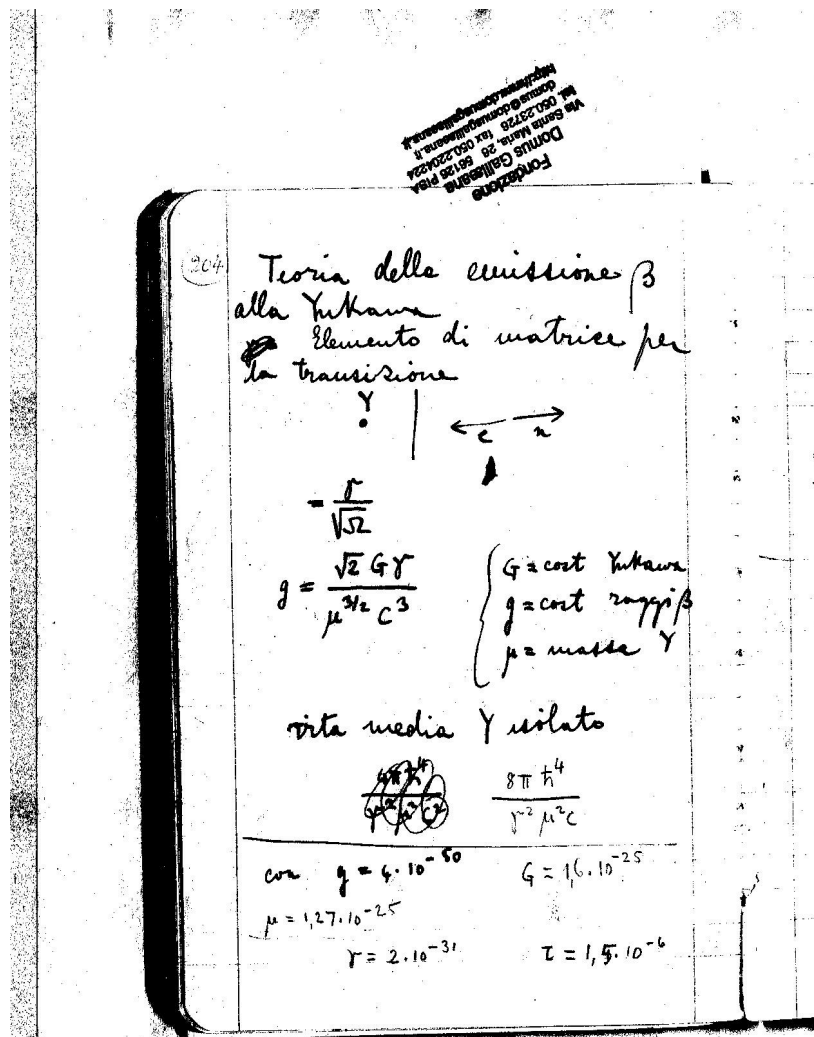 Fondazione
Domus Galilaeana
Via Santa Maria, 26 56126 PISA
tel. 050.23726 fax 050.2204224
domus@domusgalilaeana.it
http://www.domusgalilaeana.it
204
Teoria della emissione β
alla Yukawa
Elemento di matrice per
la transizione
Y
e n
= γ/√Ω
g = √2 Gγ / μ^{3/2} c^3
G = cost Yukawa
g = cost raggi β
μ = massa Y
vita media Y isolato
8π ħ^4 / γ^2 μ^2 c
con g = 4·10^{-50} G = 1,6·10^{-25}
μ = 1,27·10^{-25}
γ = 2·10^{-31} τ = 1,5·10^{-6}